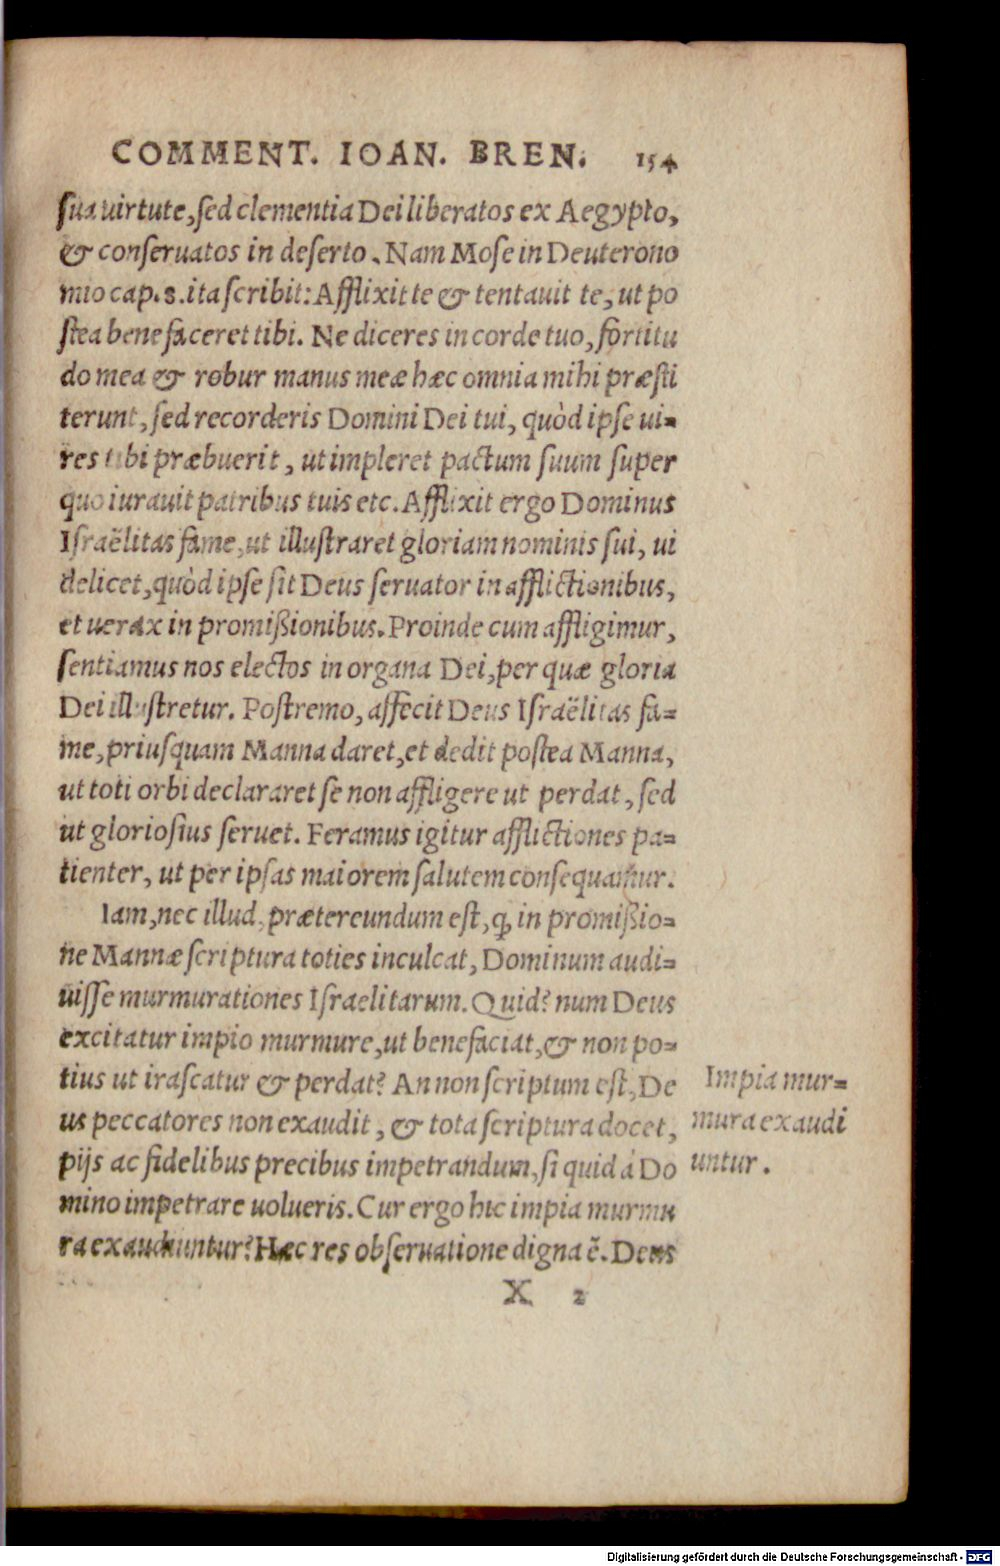 COMMENT. IOAN. BREN. 154
sua uirtute, sed clementia Dei liberatos ex Aegypto,
& conseruatos in deserto. Nam Mose in Deuterono
mio cap. 8. ita scribit: Afflixit te & tentauit te, ut po
stea benefaceret tibi. Ne diceres in corde tuo, fortitu
do mea & robur manus meæ hæc omnia mihi præsti
terunt, sed recorderis Domini Dei tui, quòd ipse ui=
res tibi præbuerit, ut impleret pactum suum super
quo iurauit patribus tuis etc. Afflixit ergo Dominus
Israëlitas fame, ut illustraret gloriam nominis sui, ui
delicet, quòd ipse sit Deus seruator in afflictionibus,
et uerax in promißionibus. Proinde cum affligimur,
sentiamus nos electos in organa Dei, per quæ gloria
Dei illustretur. Postremo, affecit Deus Israëlitas fa=
me, priusquam Manna daret, et dedit postea Manna,
ut toti orbi declararet se non affligere ut perdat, sed
ut gloriosius seruet. Feramus igitur afflictiones pa=
tienter, ut per ipsas maiorem salutem consequamur.
Iam, nec illud prætereundum est, ꝙ in promißio=
ne Mannæ scriptura toties inculcat, Dominum audi=
uisse murmurationes Israelitarum. Quid? num Deus
excitatur impio murmure, ut benefaciat, & non po=
tius ut irascatur & perdat? An non scriptum est, De
us peccatores non exaudit, & tota scriptura docet,
pijs ac fidelibus precibus impetrandum, si quid á Do
mino impetrare uolueris. Cur ergo hic impia murmu
ra exaudiuntur? Hæc res obseruatione digna ẽ. Deus
Impia mur=
mura exaudi
untur.
X 2
Digitalisierung gefördert durch die Deutsche Forschungsgemeinschaft - DFG